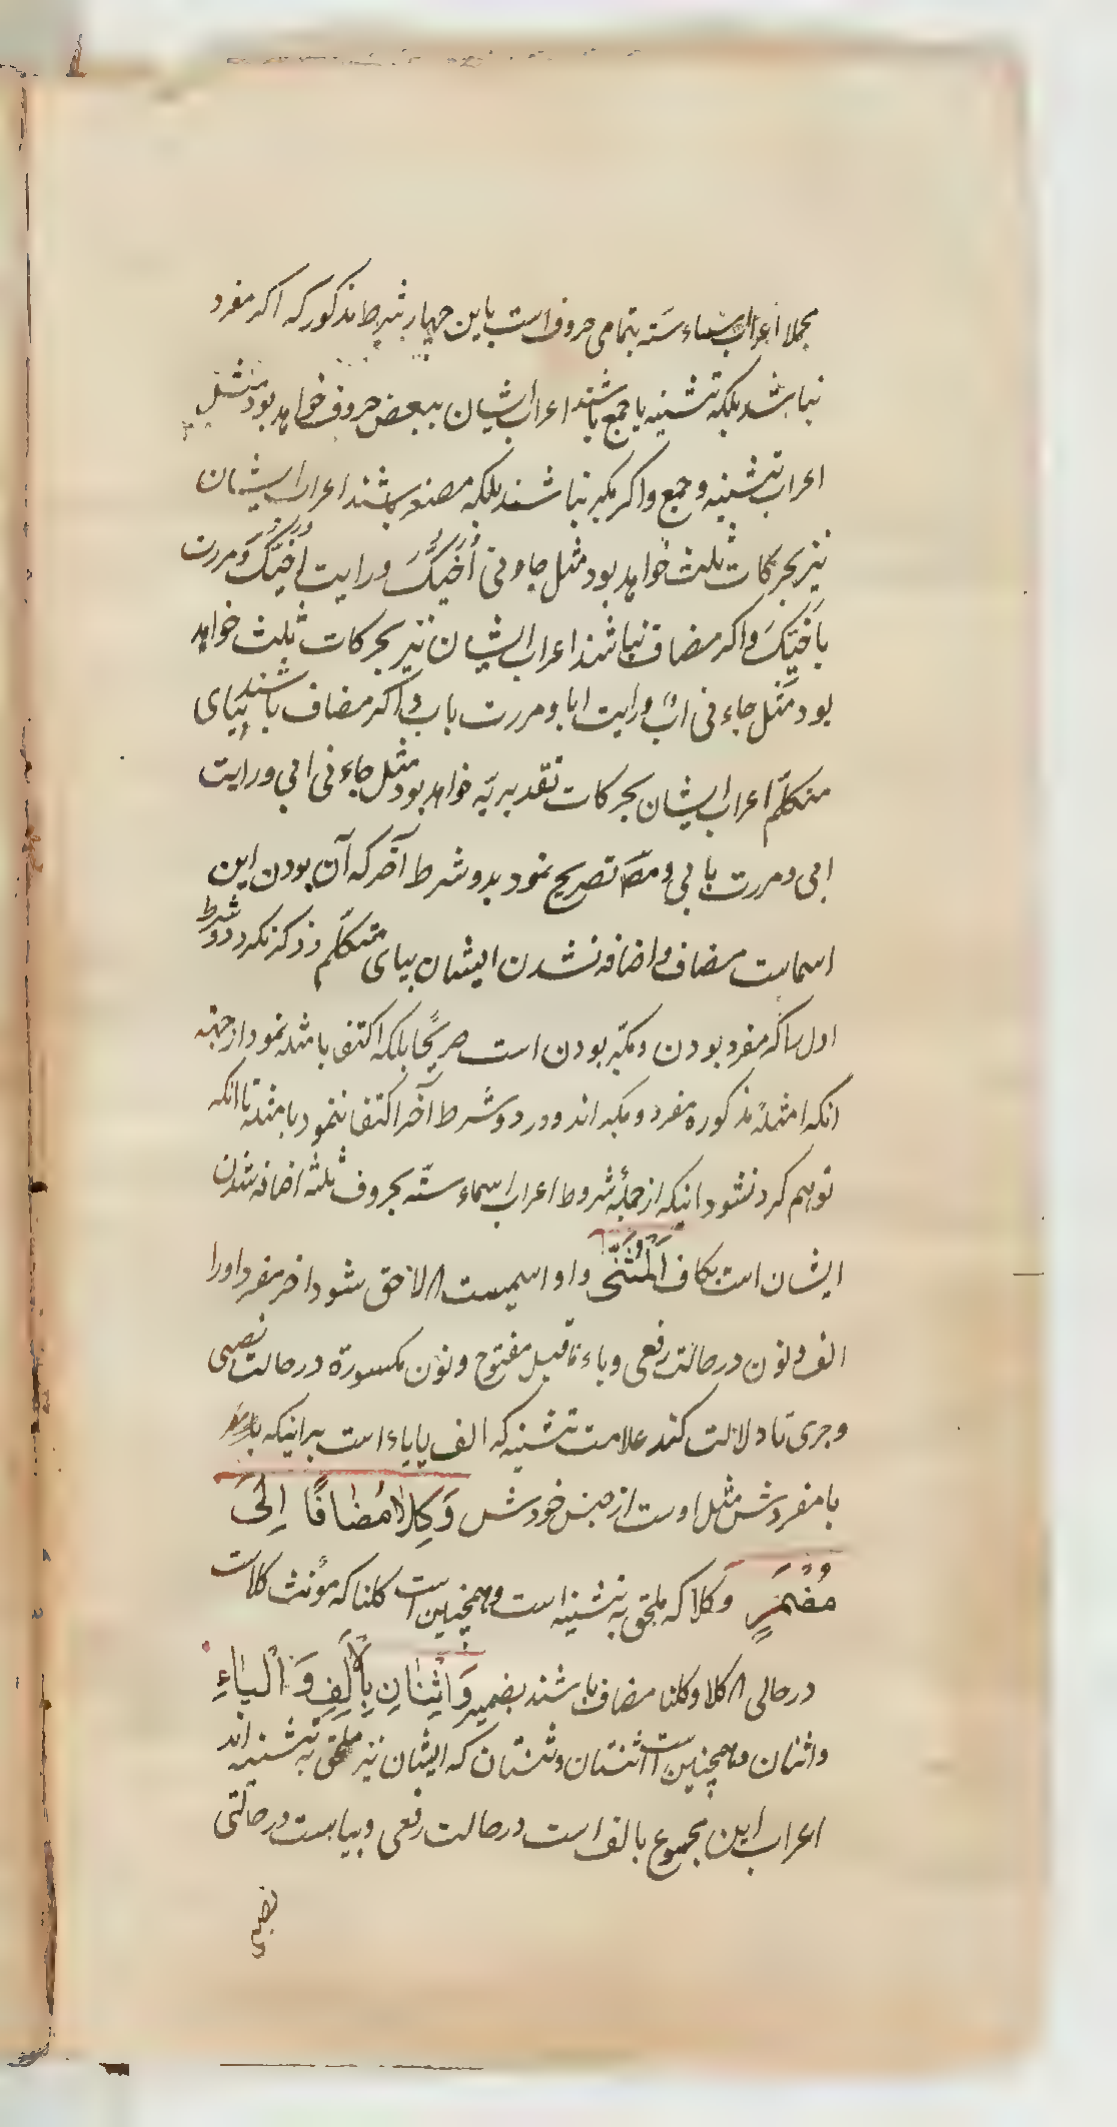 مجملا اعراب اسماء سته بتمامی حروف است باین چهار شرط مذکور که اکر مفرد
نباشند بلکه تثنیه یا جمع باشند اعراب ایشان ببعض حروف خواهد بود مثل
اعراب تثنیه و جمع و اکر مکبر نباشند بلکه مصغر باشند اعراب ایشان
نیز بحرکات ثلث خواهد بود مثل جاءنی اُخَیُّکَ و رایت اُخَیَّکَ و مررت
باُخَیِّکَ و اکر مضاف نباشند اعراب ایشان نیز بحرکات ثلث خواهد
بود مثل جاءنی ابٌ و رایت ابا و مررت باب و اکر مضاف باشند بیای
متکلّم اعراب ایشان بحرکات تقدیریّه خواهد بود مثل جاءنی ابی و رایت
ابی و مررت بابی و مصّ تصریح نمود بدو شرط آخر که آن بودن این
اسماست مضاف و اضافه نشدن ایشان بیای متکلّم و ذکر نکرد دو شرط
اول را که مفرد بودن و مکبّر بودن است صریحًا بلکه اکتفا بامثله نمود از جهته
انکه امثلهٔ مذکوره مفرد و مکبر اند و در دو شرط آخر اکتفا ننمود بامثله تا انکه
توهم کرده نشود اینکه از جملهٔ شروط اعراب اسماء ستّه بحروف ثلثه اضافه شدن
ایشان است بکاف اَلْمُثَنّٰی و او اسمیست که لاحق شود اخر مفرد او را
الف و نون در حالت رفعی و یاء ماقبل مفتوح و نون مکسورة در حالت نصبی
و جری تا دلالت کند علامت تثنیه که الف یا یاء است براینکه
با مفردش مثل اوست از جنس خودش وَکِلٰا مُضٰافًا اِلٰی
مُضْمَرٍ و کلا که ملحق به تثنیه است و همچنین است کلتا که مؤنث کلاست
در حالی که کلا و کلتا مضاف باشند بضمیر وَاثْنٰانِ بِالْاَلِفِ وَ الْیٰاءِ
و اثنان و همچنین است اثنتان و ثنتان که ایشان نیز ملحق به تثنیه اند
اعراب این مجموع بالف است در حالت رفعی و بیاست در حالتی
نصبی